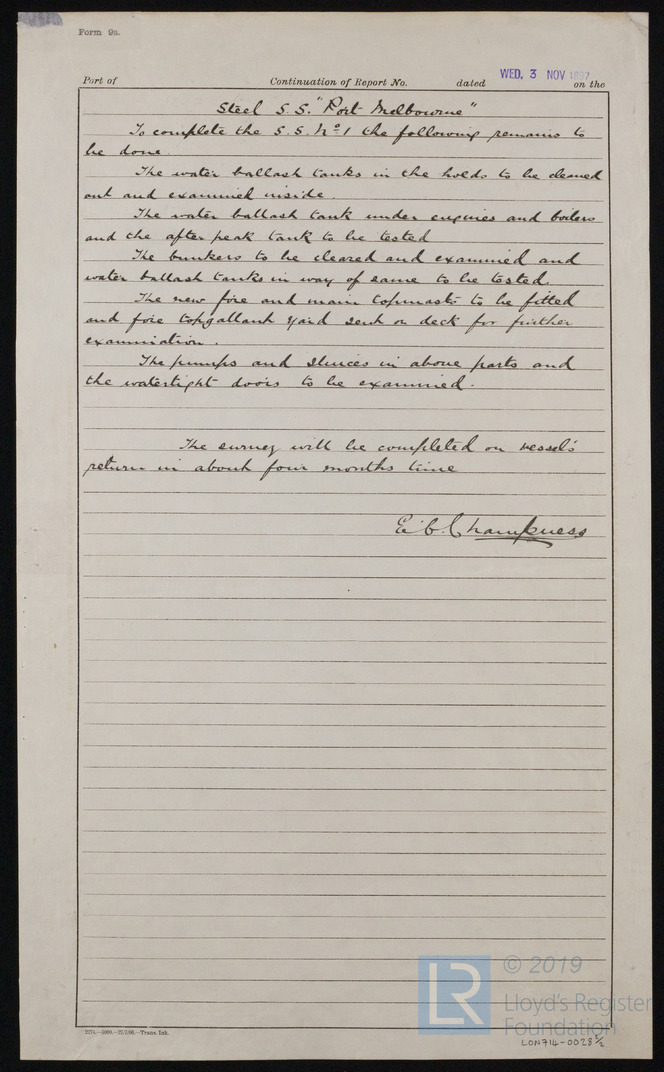 Form 9a.
Port of Continuation of Report No. dated WED. 3 NOV 1897 on the
Steel S.S. "Port Melbourne"
To complete the S.S. No 1 the following remains to
be done.
The water ballast tanks in the holds to be cleaned
out and examined inside.
The water ballast tank under engines and boilers
and the after peak tank to be tested
The bunkers to be cleared and examined and
water ballast tanks in way of same to be tested.
The new fore and main topmasts to be fitted
and fore topgallant yard sent on deck for further
examination.
The pumps and sluices in above parts and
the watertight doors to be examined.
The survey will be completed on vessel's
return in about four months time
E. C. Champness
2274.—5000.—27/7/96.—Trans. Ink.
LR © 2019
Lloyd's Register
Foundation
LON714-0028 1/2